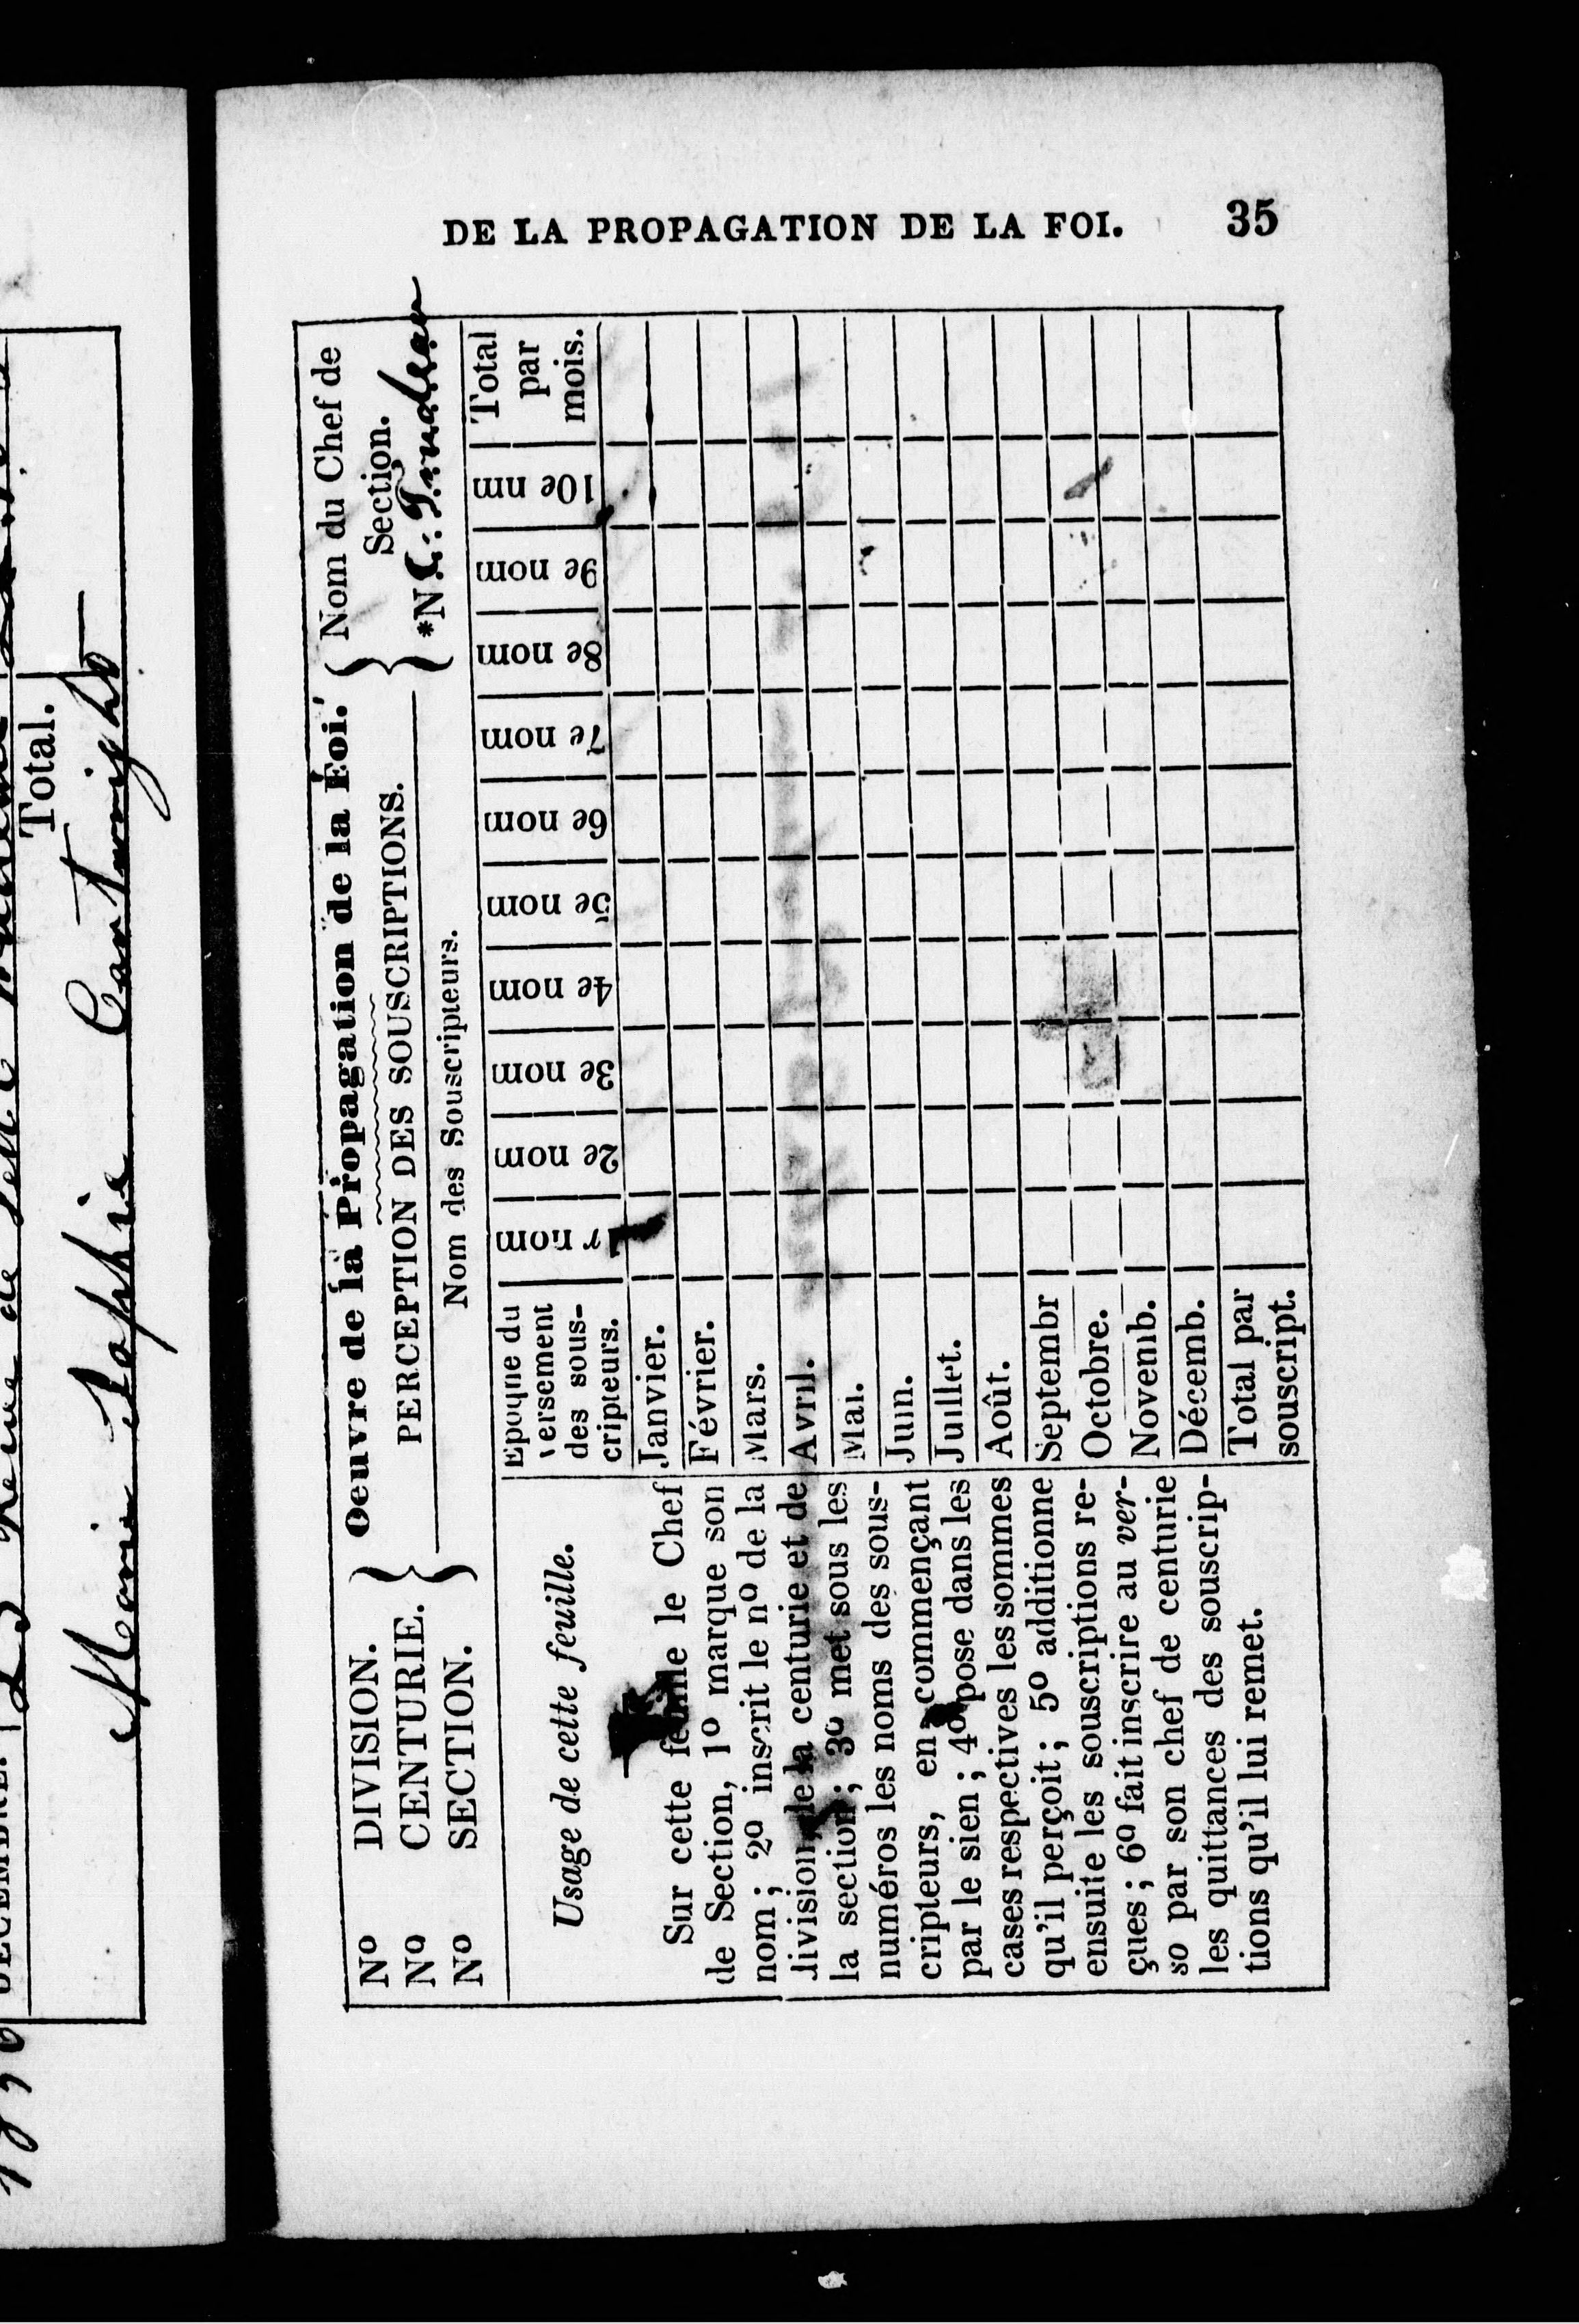 DE LA PROPAGATION DE LA FOI. 35
No DIVISION.
No CENTURIE.
No SECTION.
Oeuvre de la Propagation de la Foi.
PERCEPTION DES SOUSCRIPTIONS.
Nom du Chef de
Section.
*N.
Nom des Souscripteurs.
Usage de cette feuille.
Sur cette feuille le Chef
de Section, 1o marque son
nom ; 2o inscrit le no de la
division, de la centurie et de
la section ; 3o met sous les
numéros les noms des sous-
cripteurs, en commençant
par le sien ; 4o pose dans les
cases respectives les sommes
qu'il perçoit ; 5o additionne
ensuite les souscriptions re-
çues ; 6o fait inscrire au ver-
so par son chef de centurie
les quittances des souscrip-
tions qu'il lui remet.
Epoque du
versement
des sous-
cripteurs.
1r nom
2e nom
3e nom
4e nom
5e nom
6e nom
7e nom
8e nom
9e nom
10e nm
Total
par
mois.
Janvier.
Février.
Mars.
Avril.
Mai.
Juin.
Juillet.
Août.
Septembr
Octobre.
Novemb.
Décemb.
Total par
souscript.
Total.
Marie Sophie Cartwright